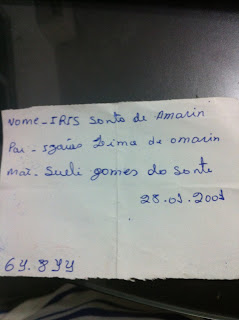 Nome - IRIS Sonto de Amarin
Pai - Izaías Lima de omarin
Mãe. Sueli gomes do Sonto
28.01.2001
64.844